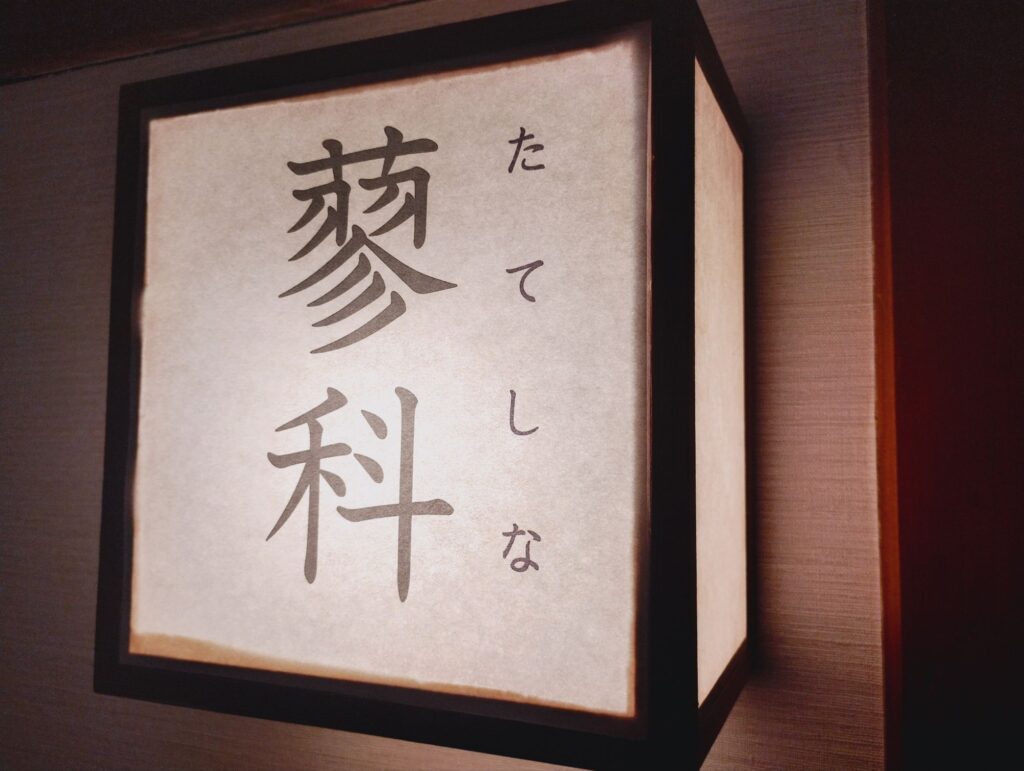 蓼科
たてしな